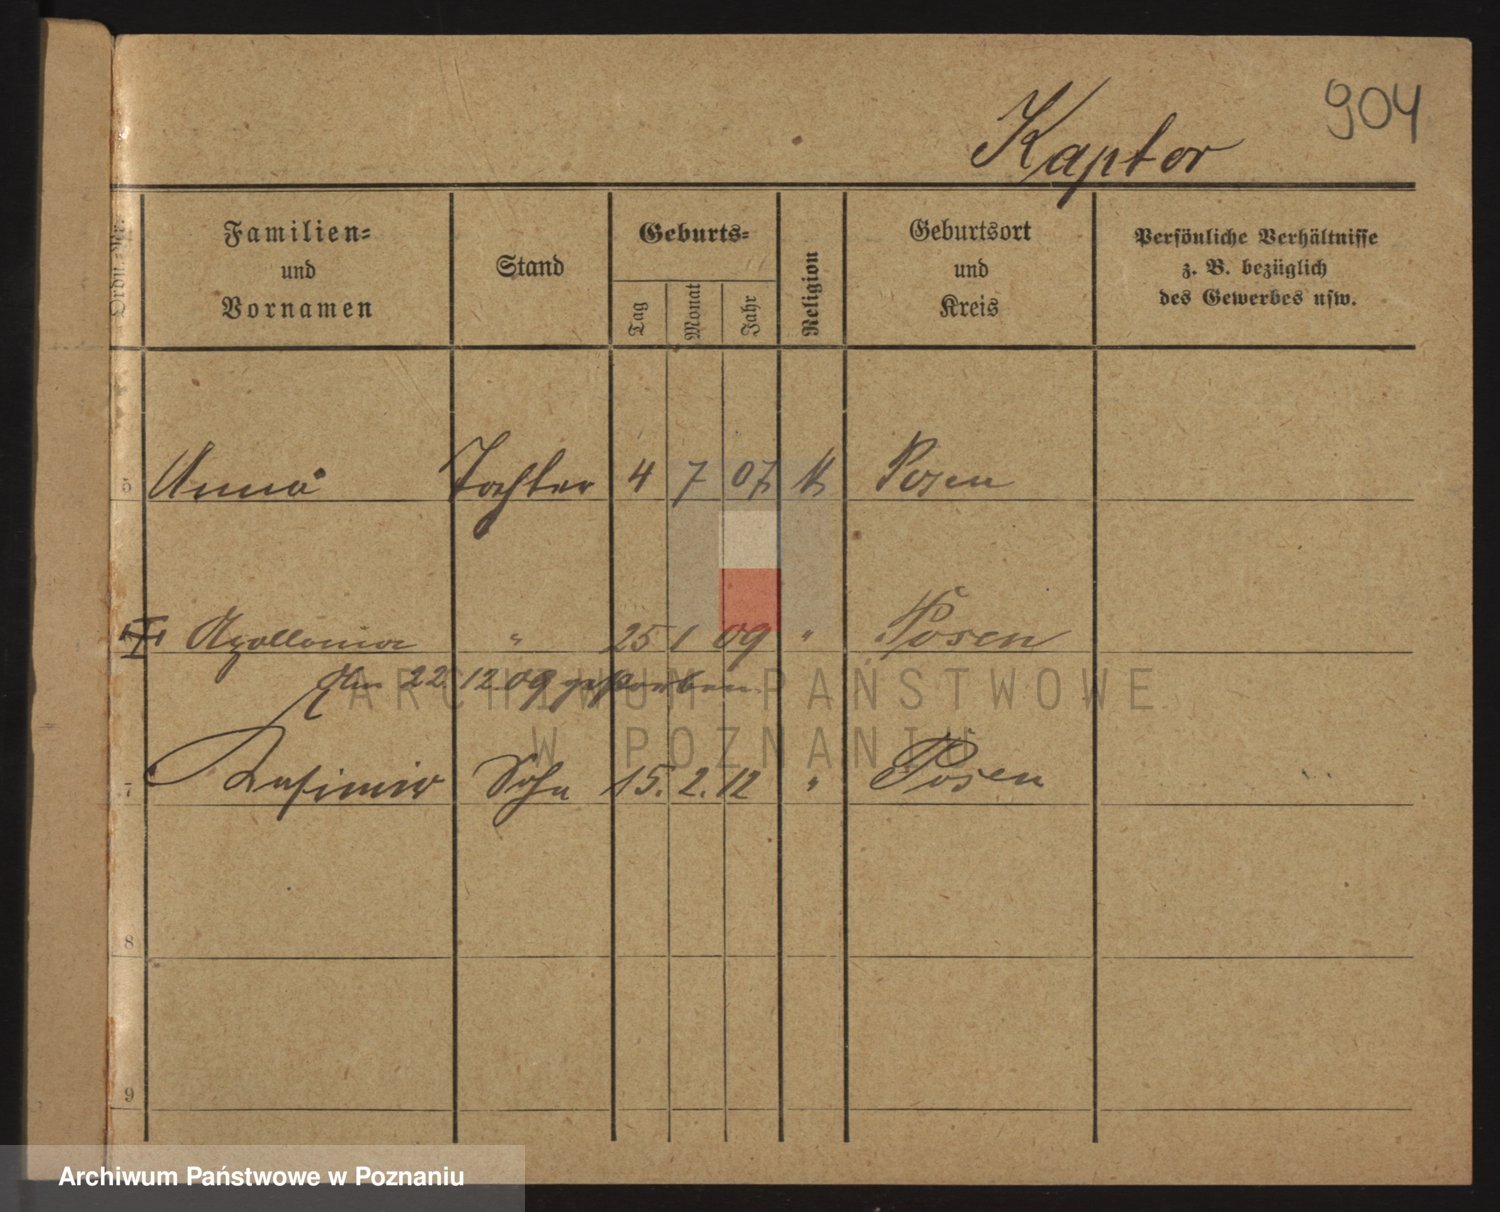 904
Kaptor
Ordn.-Nr.
Familien- und Vornamen
Stand
Geburts-
Tag
Monat
Jahr
Religion
Geburtsort und Kreis
Persönliche Verhältnisse z. B. bezüglich des Gewerbes usw.
5 Anna Tochter 4 7 07 K Posen
Apollonia " 25 1 09 " Posen
Am 22 12 09 gestorben.
7 Kasimir Sohn 15. 2. 12 " Posen
8
9
ARCHIWUM PAŃSTWOWE
W POZNANIU
Archiwum Państwowe w Poznaniu